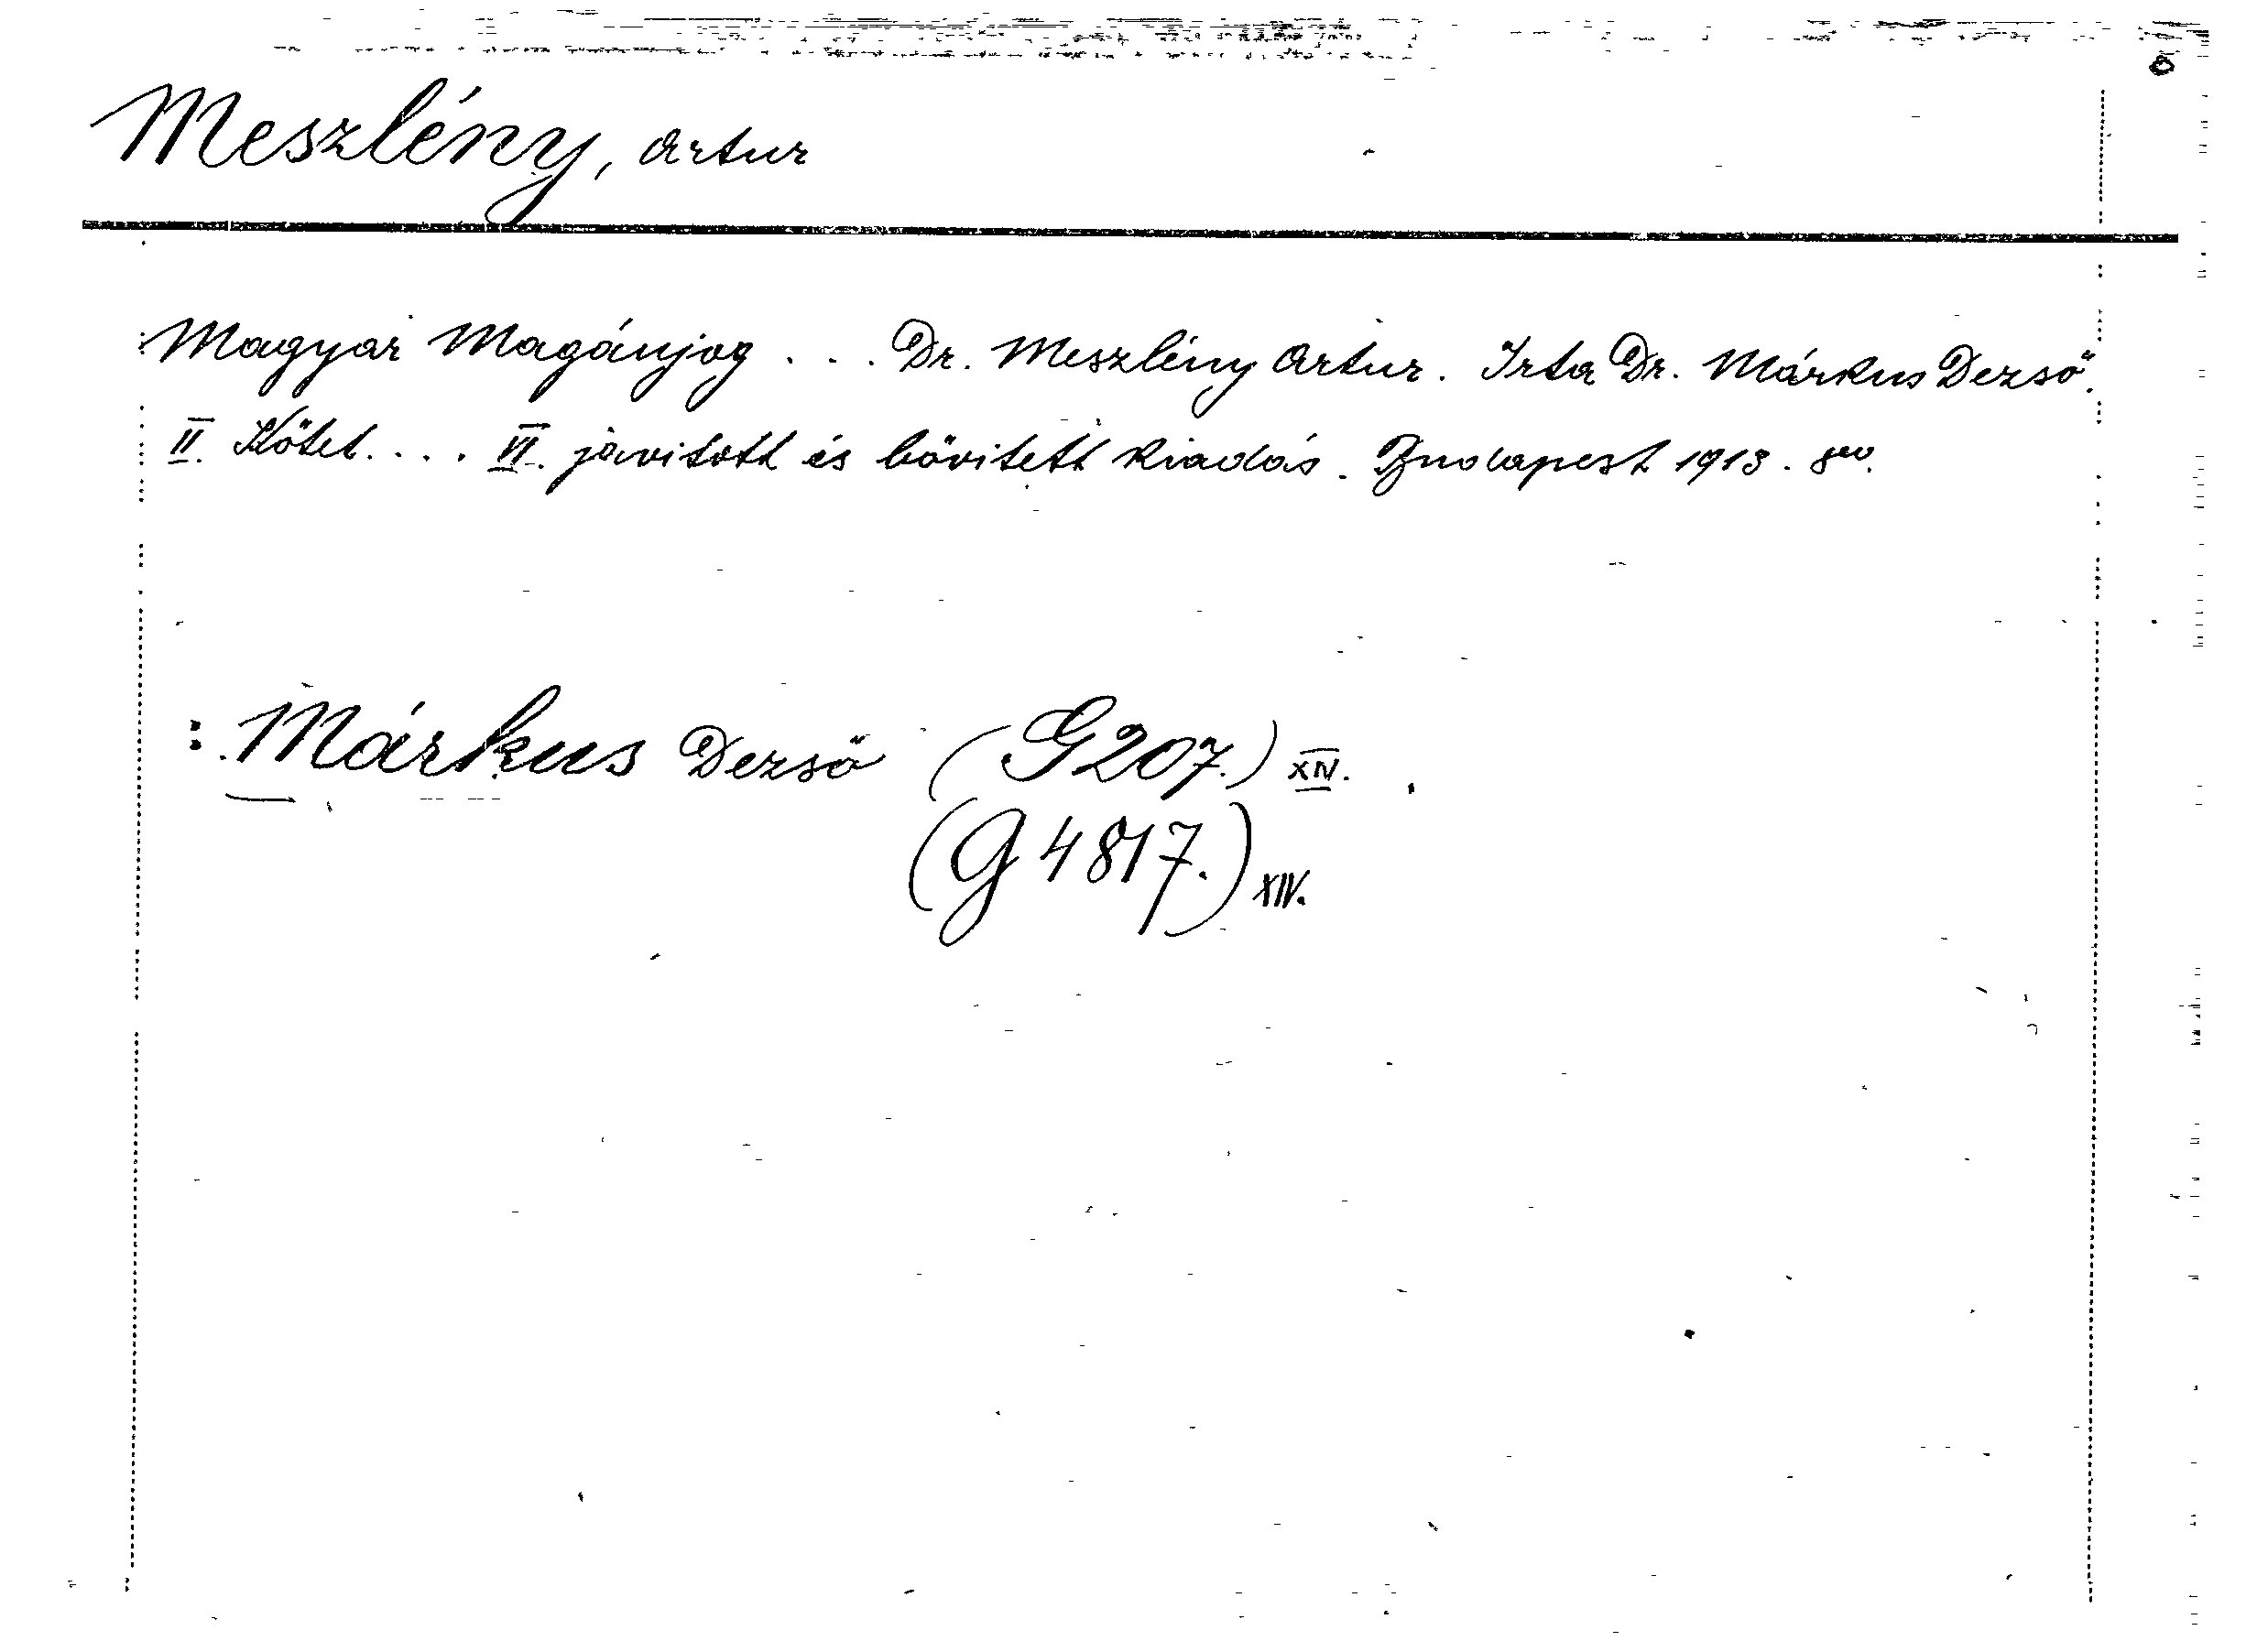 Meszlény, Artur
Magyar Magánjog . . . Dr. Meszlény Artur. Irta Dr. Márkus Dezsö.
II. Kötet. . . . VI. javitott és bövitett kiadás. Budapest 1913. 8vo.
: Márkus Dezsö (G 207.) XIV.
(G 4817.) XIV.